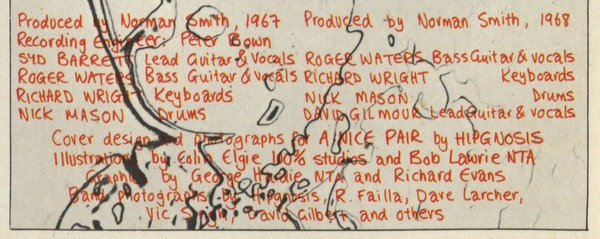 Produced by Norman Smith, 1967
Recording Engineer: Peter Bown
SYD BARRETT Lead Guitar & Vocals
ROGER WATERS Bass Guitar & Vocals
RICHARD WRIGHT Keyboards
NICK MASON Drums
Produced by Norman Smith, 1968
ROGER WATERS Bass Guitar & vocals
RICHARD WRIGHT Keyboards
NICK MASON Drums
DAVID GILMOUR Lead Guitar & vocals
Cover design and photographs for A NICE PAIR by HIPGNOSIS
Illustrations by Colin Elgie 100% studios and Bob Lawrie NTA
Graphics by George Hardie NTA and Richard Evans
Band photographs by Hipgnosis, R. Failla, Dave Larcher,
Vic Singh, David Gilbert and others